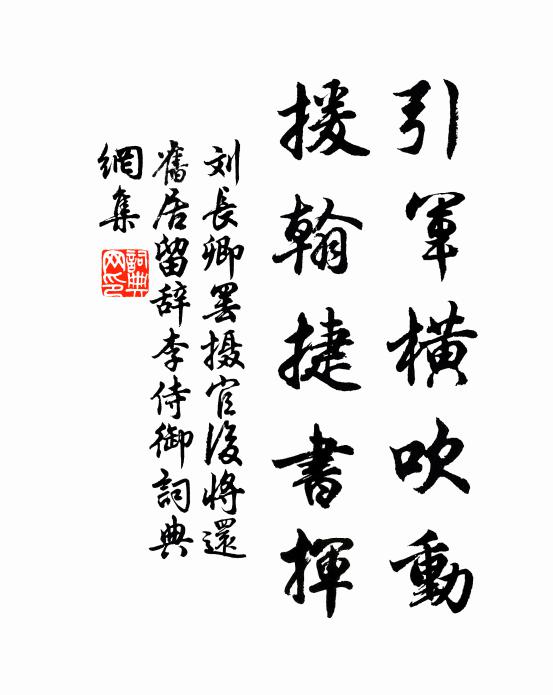 引军橫吹動
援翰捷書揮
刘長卿罢摄官後將還
舊居留辞李侍御詞典
網集
詞典
网印